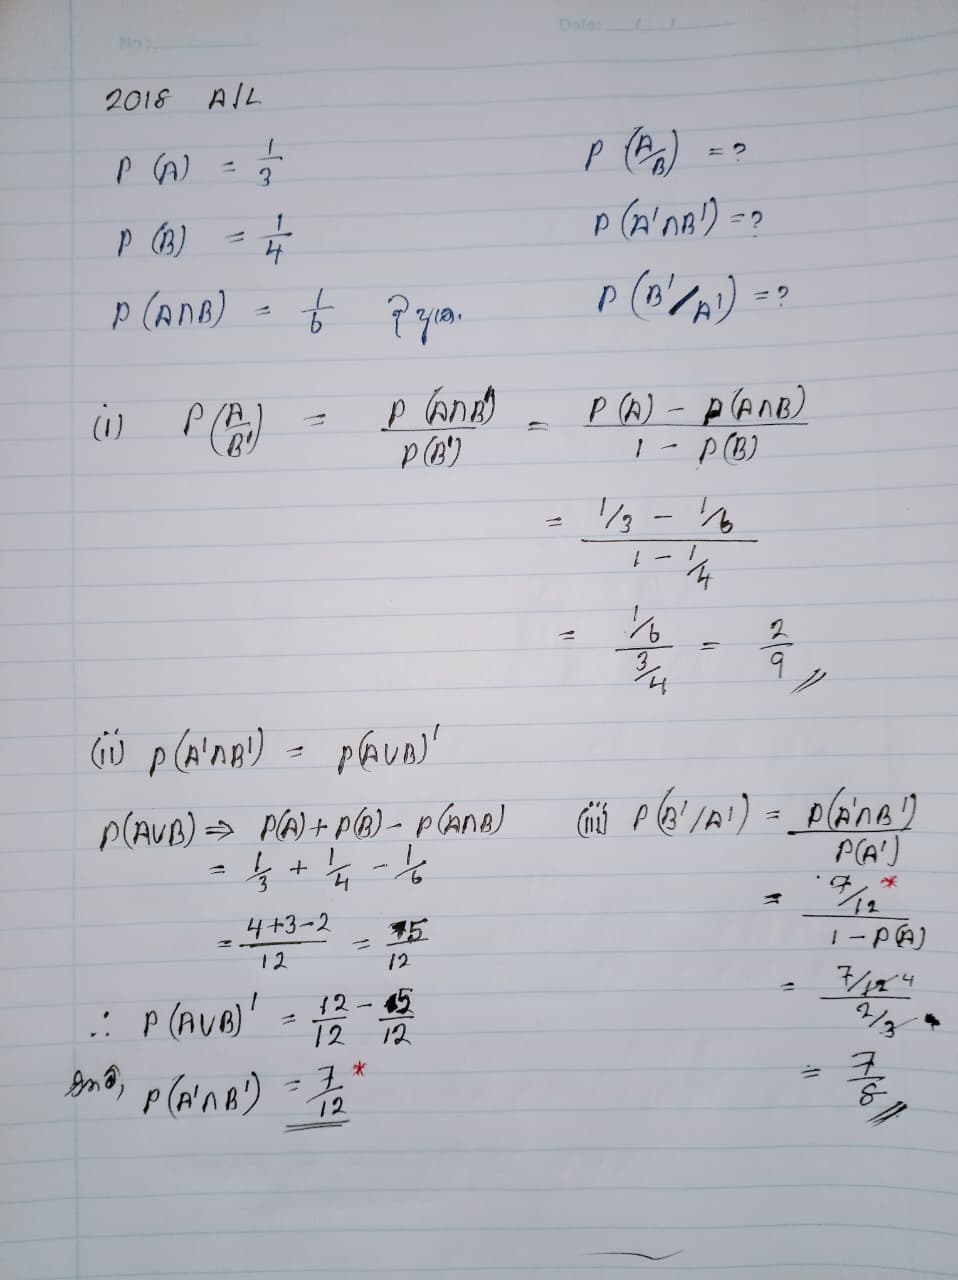 No:
Date: / /
2018 A/L
P (A) = 1/3
P (A/B) = ?
P (B) = 1/4
P (A'∩B') = ?
P (A∩B) = 1/6
P (B'/A') = ?
(i) P(A/B') = P (A∩B')/P(B') = P(A) - P(A∩B)/1 - P(B)
= 1/3 - 1/6/1 - 1/4
= 1/6/3/4 = 2/9
(ii) P(A'∩B') = P(A∪B)'
P(A∪B) ⇒ P(A) + P(B) - P(A∩B)
= 1/3 + 1/4 - 1/6
= 4+3-2/12 = 5/12
∴ P(A∪B)' = 12/12 - 5/12
P(A'∩B') = 7/12 *
(iii) P(B'/A') = P(A'∩B')/P(A')
= 7/12 */1 - P(A)
= 7/12 4/2/3
= 7/8